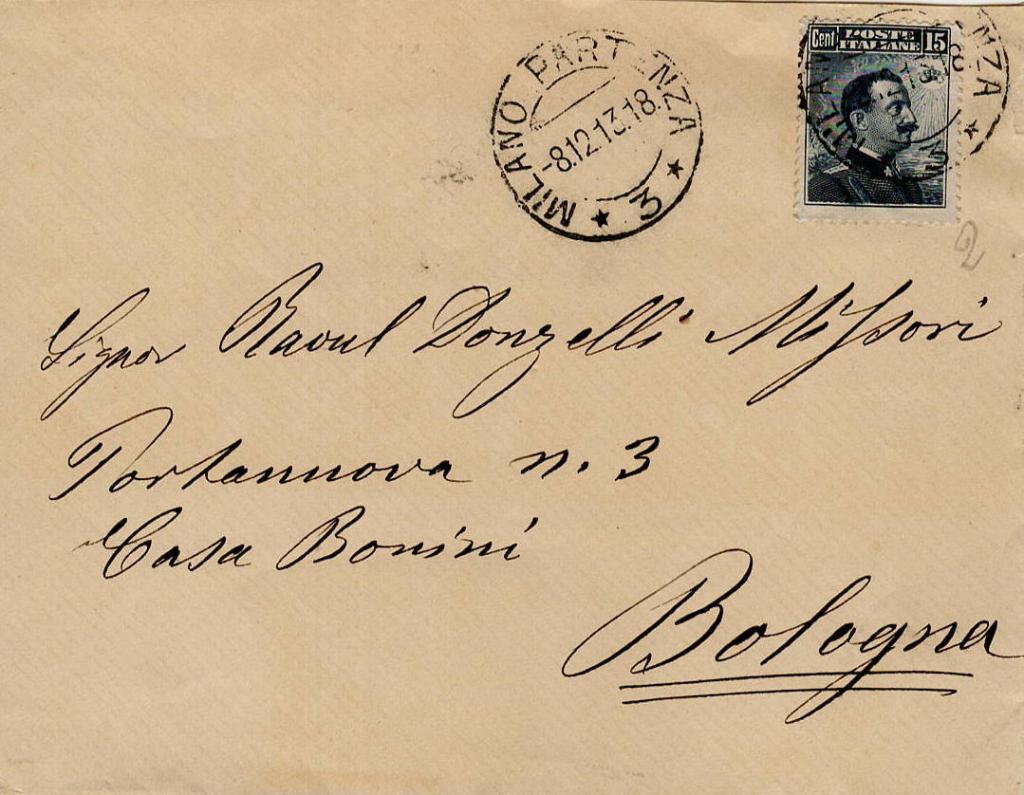 MILANO PARTENZA
-8.12.13.18.
★ 3 ★
Cent POSTE ITALIANE 15
2
Signor Raoul Donzelli Missori
Portannova n. 3
Casa Bonini
Bologna